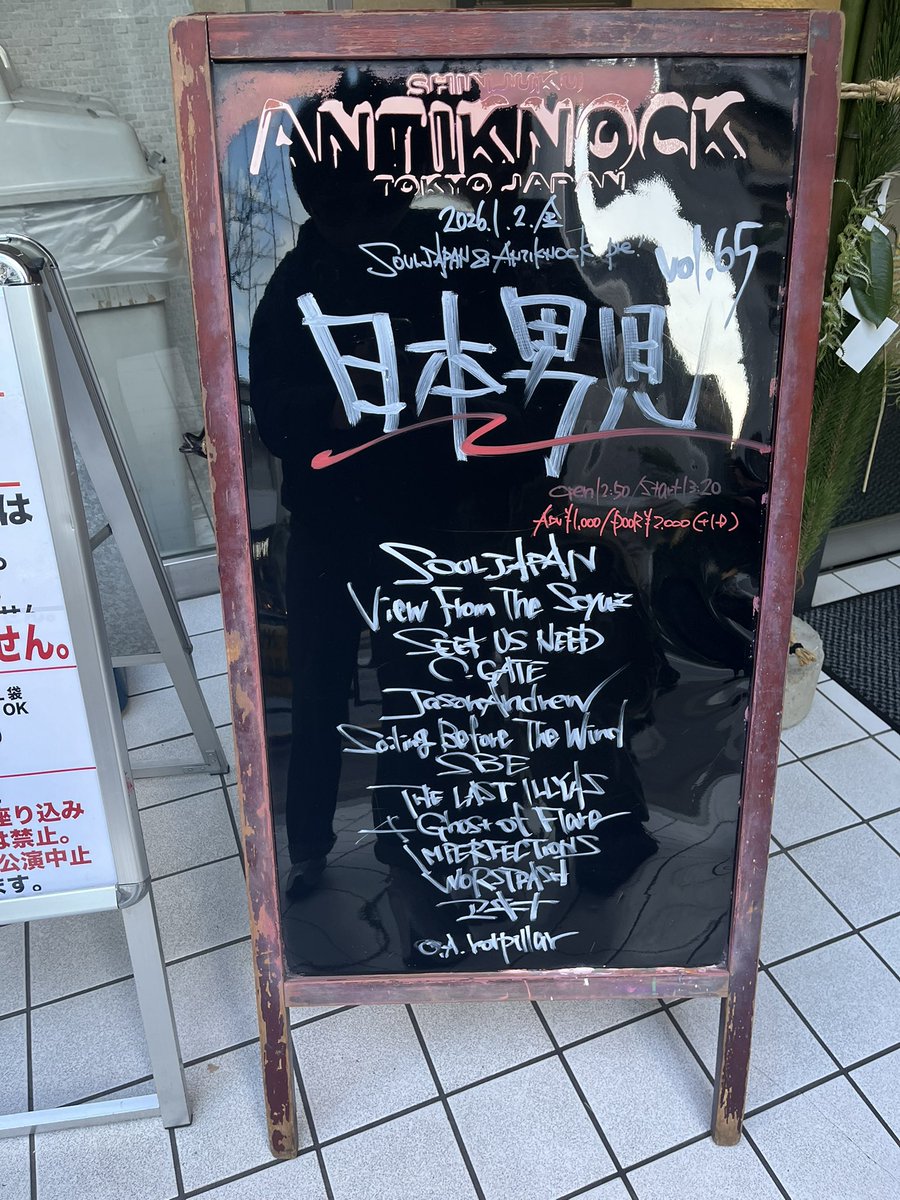 SHINJUKU
ANTIKNOCK
TOKYO JAPAN
2026.1.2./金
SOUL JAPAN & ANTIKNOCK pre.
vol.65
日本男児
open12:50/Start13:20
ADV ¥1,000/DOOR ¥2,000(+1D)
SOUL JAPAN
View From The Soyuz
SEET US NEED
C-GATE
JasonAndrew
Sailing Before The Wind
SBE
THE LAST ILLYAS
A Ghost of Flare
IMPERFECTIONS
WORSTRASH
O.A. hotpillar
は
せん。
袋
OK
座り込み
は禁止。
公演中止
ます。